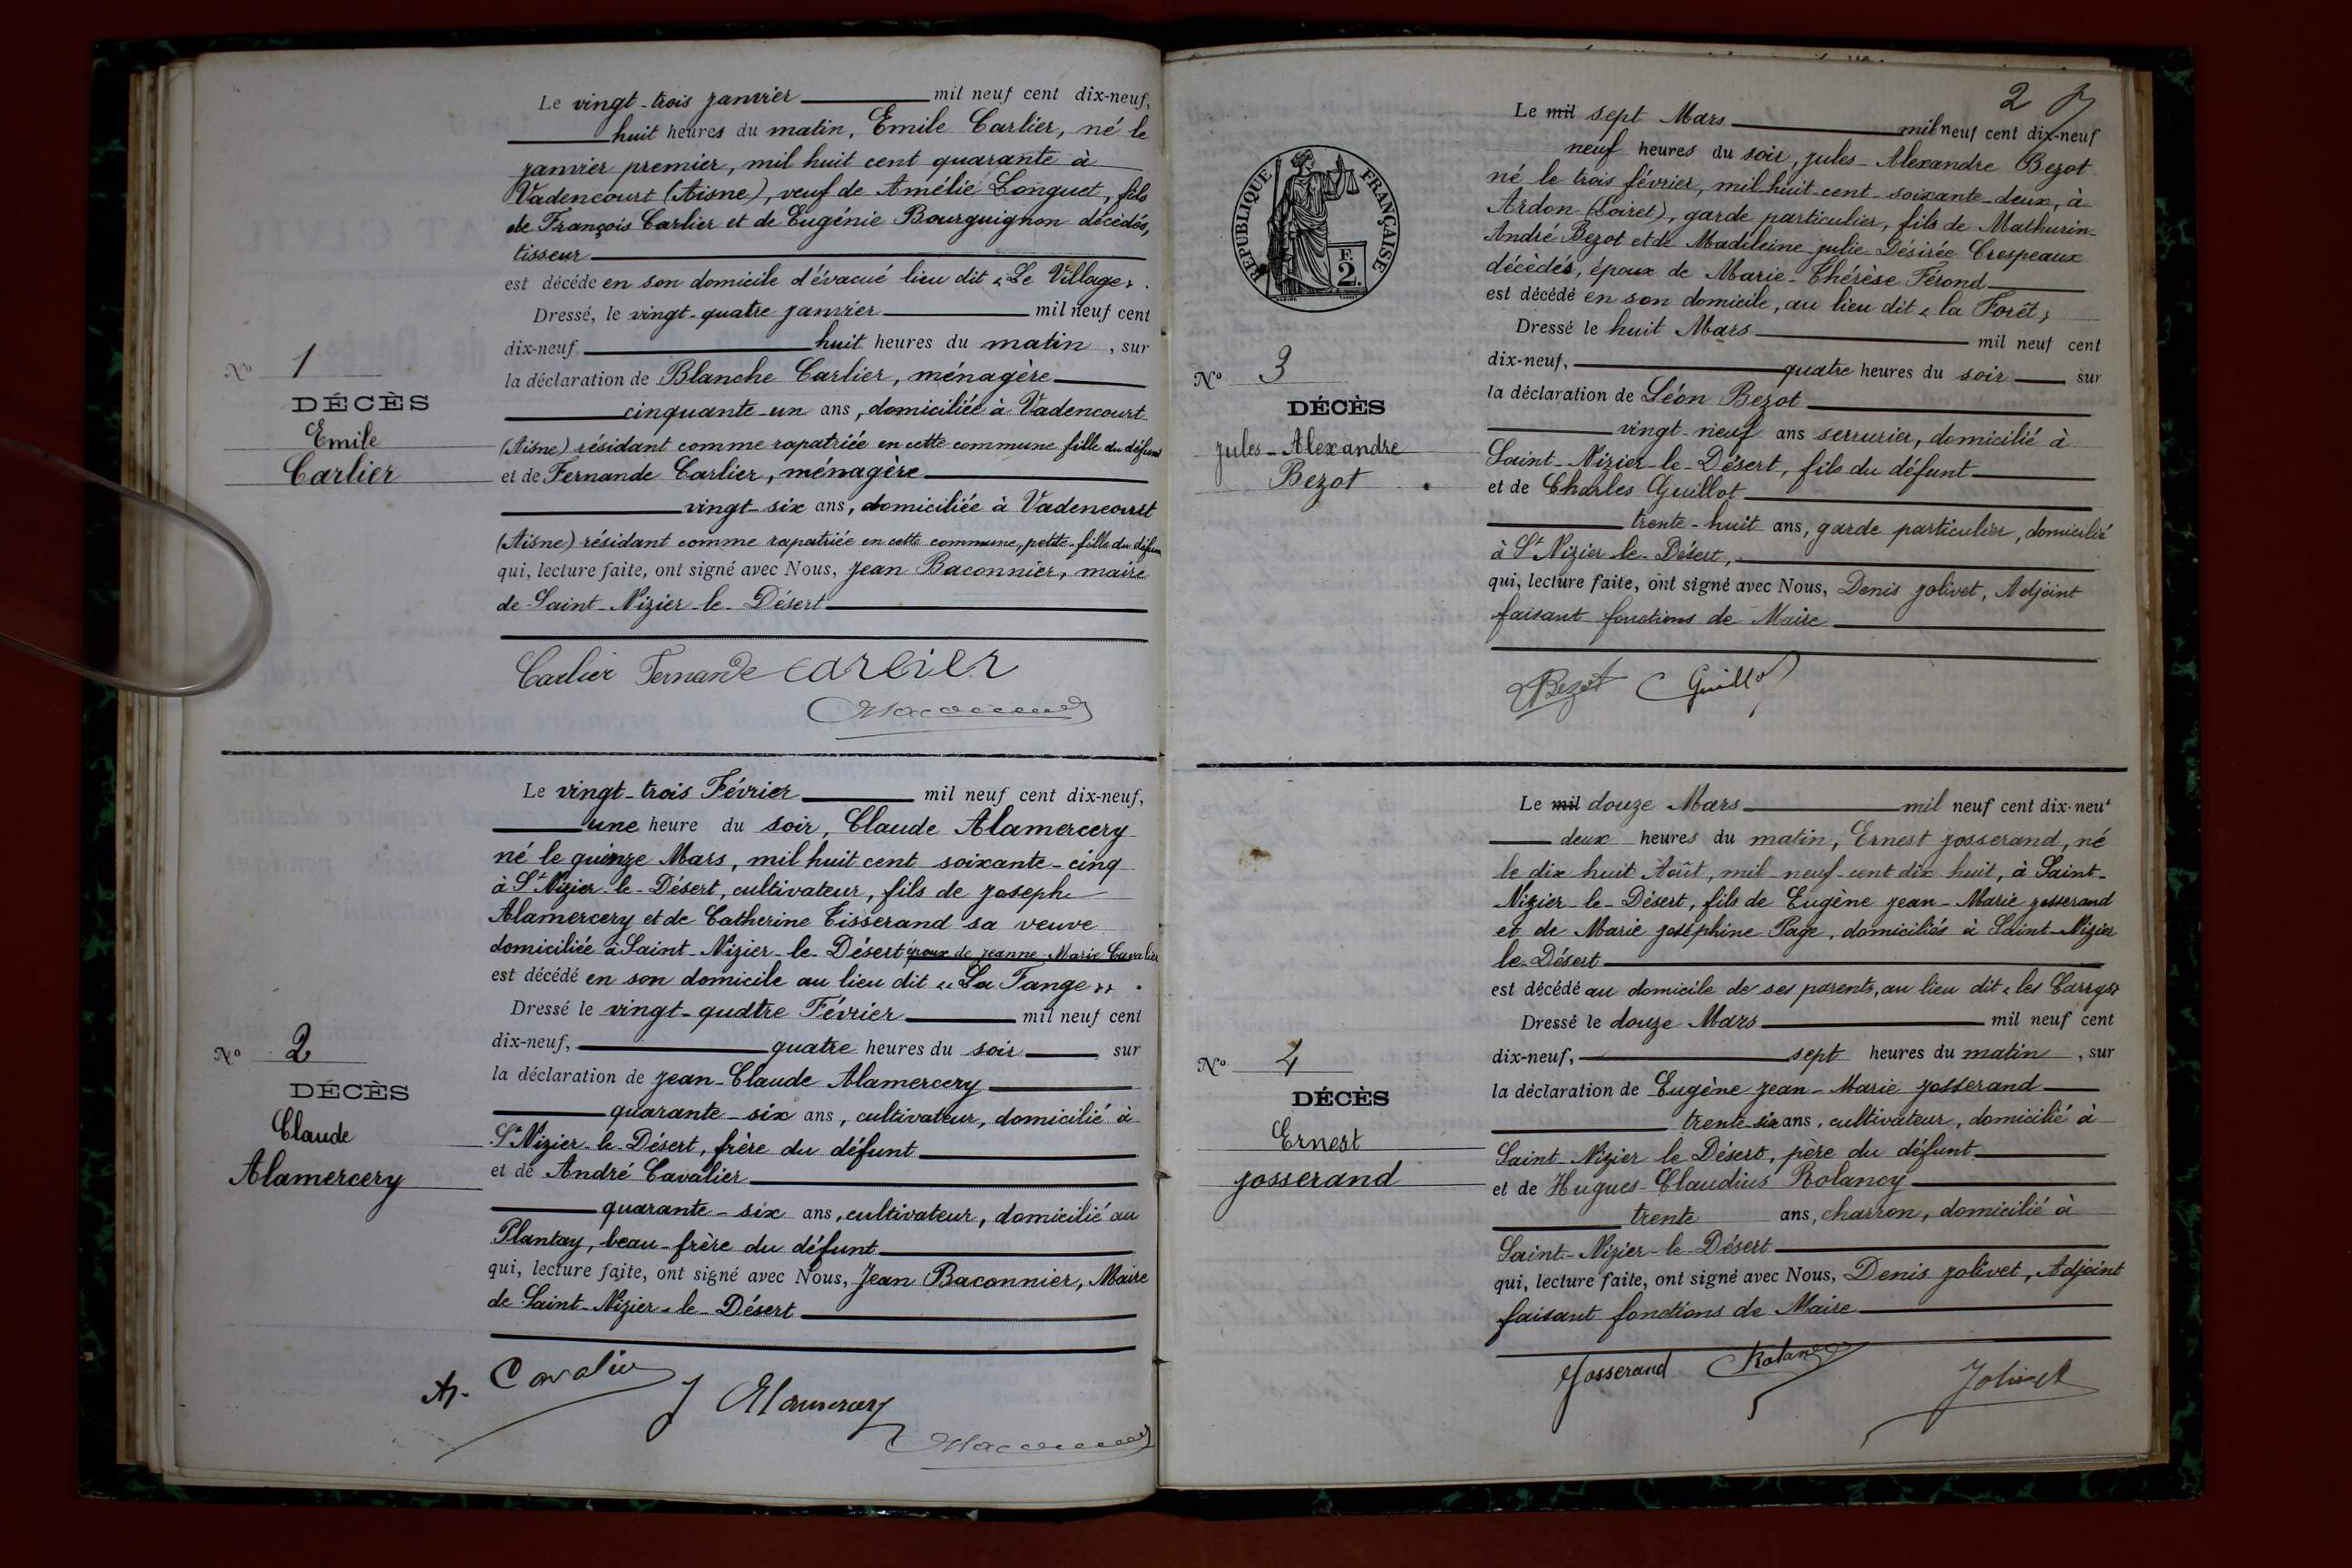 Le vingt-trois janvier mil neuf cent dix-neuf,
huit heures du matin, Emile Carlier, né le
janvier premier, mil huit cent quarante à
Vadencourt (Aisne), veuf de Amélie Longuet, fils
de François Carlier et de Eugénie Bourguignon décédés,
tisseur
est décédé en son domicile d'évacué lieu dit « Le Village ».
Dressé, le vingt-quatre janvier mil neuf cent
dix-neuf huit heures du matin, sur
la déclaration de Blanche Carlier, ménagère
cinquante-un ans, domiciliée à Vadencourt
(Aisne) résidant comme rapatriée en cette commune fille du défunt
et de Fernande Carlier, ménagère
vingt-six ans, domiciliée à Vadencourt
(Aisne) résidant comme rapatriée en cette commune, petite-fille du défun
qui, lecture faite, ont signé avec Nous, Jean Baconnier, maire
de Saint-Nizier-le-Désert
N° 1
DÉCÈS
Emile
Carlier
Carlier Fernande Carlier
Le vingt-trois Février mil neuf cent dix-neuf,
une heure du soir, Claude Alamercery
né le quinze Mars, mil huit cent soixante-cinq
à St Nizier-le-Désert, cultivateur, fils de Joseph
Alamercery et de Catherine Tisserand sa veuve
domiciliée à Saint-Nizier-le-Désert époux de Jeanne Marie Cavalier
est décédé en son domicile au lieu dit « La Fange ».
Dressé le vingt-quatre Février mil neuf cent
dix-neuf, quatre heures du soir sur
la déclaration de Jean-Claude Alamercery
quarante-six ans, cultivateur, domicilié à
St Nizier-le-Désert, frère du défunt
et de André Cavalier
quarante-six ans, cultivateur, domicilié au
Plantay, beau-frère du défunt
qui, lecture faite, ont signé avec Nous, Jean Baconnier, Maire
de Saint-Nizier-le-Désert
N° 2
DÉCÈS
Claude
Alamercery
A. Cavalier
J Alamercery
2
RÉPUBLIQUE FRANÇAISE
F.
2.
Le mil sept Mars mil neuf cent dix-neuf
neuf heures du soir, Jules-Alexandre Bezot
né le trois février, mil huit cent soixante-deux, à
Ardon (Loiret), garde particulier, fils de Mathurin-
André Bezot et de Madeleine Julie Désirée Crespeaux
décédés, époux de Marie-Thérèse Férond
est décédé en son domicile, au lieu dit « la Forêt »
Dressé le huit Mars mil neuf cent
dix-neuf, quatre heures du soir sur
la déclaration de Léon Bezot
vingt-neuf ans serrurier, domicilié à
Saint-Nizier-le-Désert, fils du défunt
et de Charles Guillot
trente-huit ans, garde particulier, domicilié
à St Nizier-le-Désert,
qui, lecture faite, ont signé avec Nous, Denis Jolivet, Adjoint
faisant fonctions de Maire
N° 3
DÉCÈS
Jules-Alexandre
Bezot
Bezot Guillot
Le mil douze Mars mil neuf cent dix-neuf
deux heures du matin, Ernest Josserand, né
le dix huit Août, mil-neuf-cent dix-huit, à Saint-
Nizier-le-Désert, fils de Eugène Jean-Marie Josserand
et de Marie Joséphine Page, domiciliés à Saint-Nizier
le-Désert
est décédé au domicile de ses parents, au lieu dit « les Carrys »
Dressé le douze Mars mil neuf cent
dix-neuf, sept heures du matin, sur
la déclaration de Eugène Jean-Marie Josserand
trente-six ans, cultivateur, domicilié à
Saint-Nizier le Désert, père du défunt
et de Hugues-Claudius Rolancy
trente ans, charron, domicilié à
Saint-Nizier-le-Désert
qui, lecture faite, ont signé avec Nous, Denis Jolivet, Adjoint
faisant fonctions de Maire
N° 4
DÉCÈS
Ernest
Josserand
Josserand
Jolivet